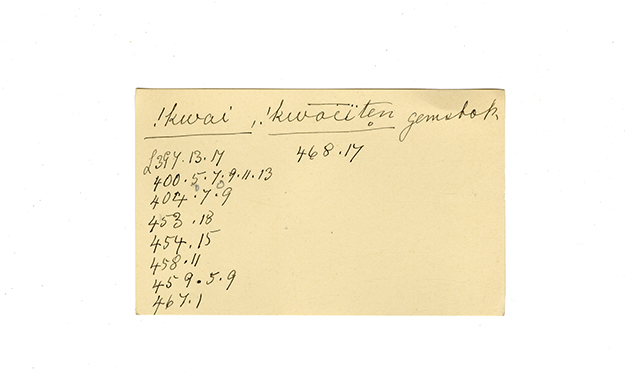 !kwai , !kwaiten gemsbok
L397.13.17
400.5.7.9.11.13
404.7.9
453.18
454.15
458.11
459.5.9
467.1
468.17